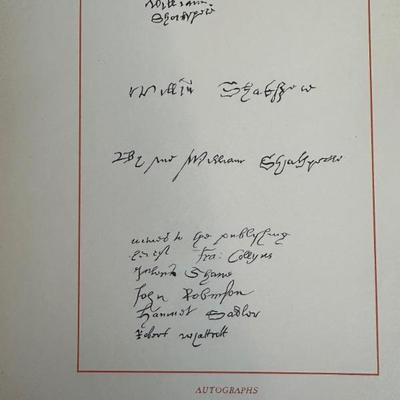 William
Shakspere
William Shakspere
By me William Shakspeare
witnes to the publyshing
hereof Fra: Collyns
Julius Shawe
John Robinson
Hamnet Sadler
Robert Whattcott
AUTOGRAPHS